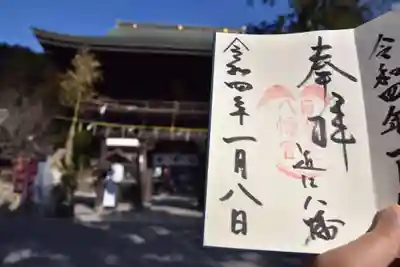 令和四年一
奉拝
近江八幡
令和四年一月八日